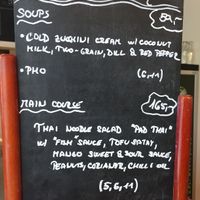 SOUPS 89,-
• COLD ZUCKINI CREAM W/ COCONUT
MILK, TWO-GRAIN, DILL & RED PEPPER
• PHO (6,11)
MAIN COURSE 165,-
THAI NOODLE SALAD "PAD THAI"
W/ FISH SAUCE, TOFU SATAY,
MANGO SWEET & SOUR SAUCE,
PEANUTS, CORIANDER, CHILI OIL
(5,6,11)